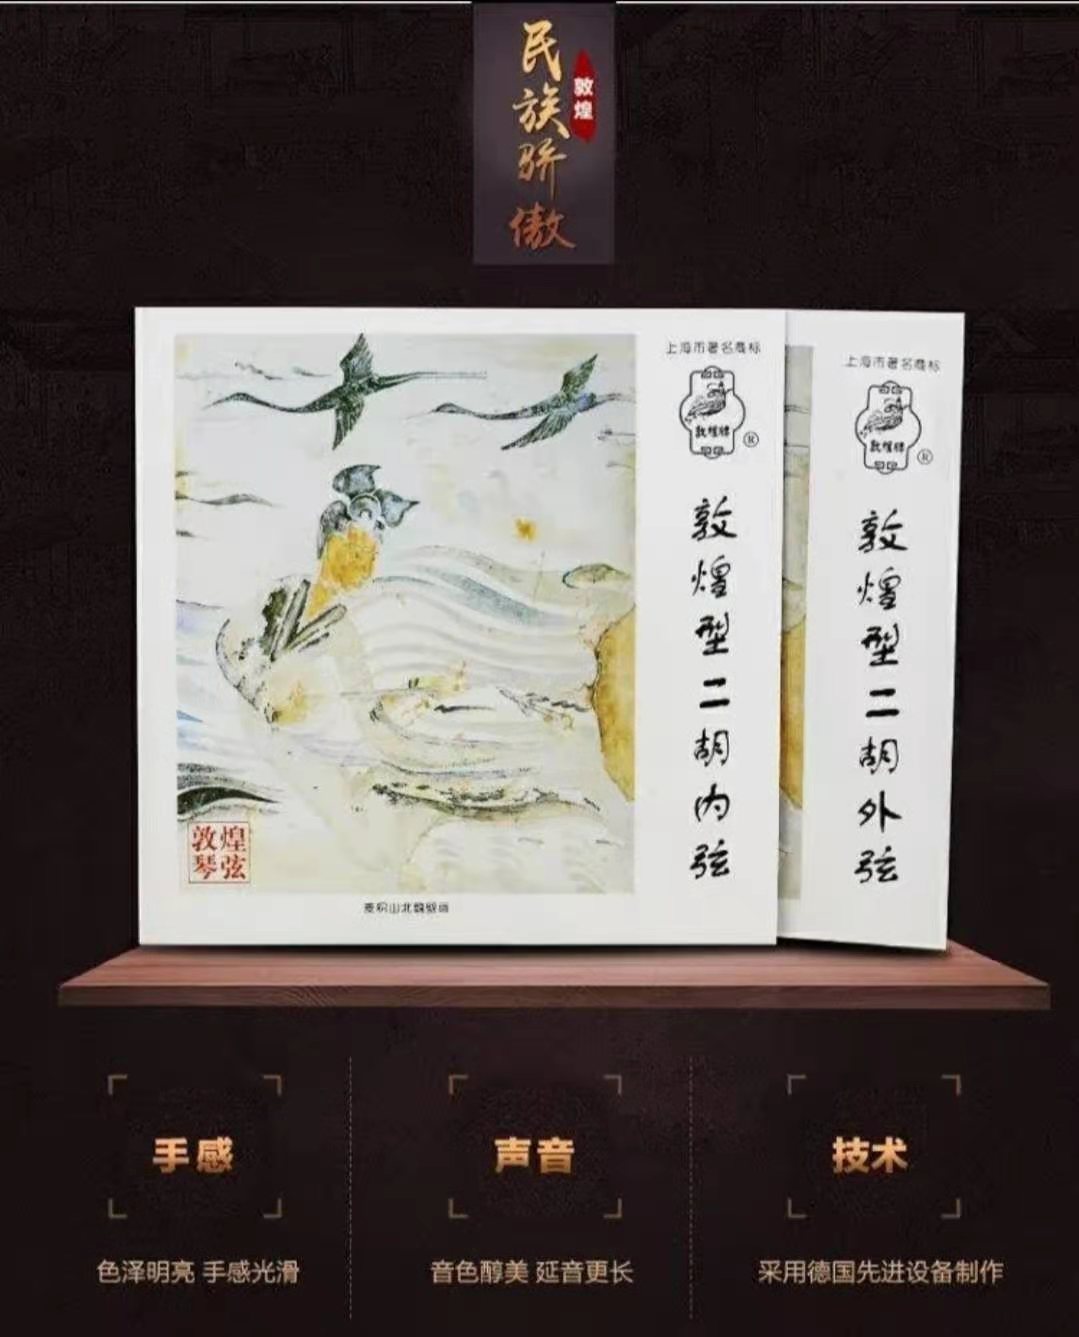 民族骄傲
敦煌
上海市著名商标
敦煌牌
®
敦煌型二胡内弦
敦煌
琴弦
麦积山北魏壁画
上海市著名商标
敦煌牌
®
敦煌型二胡外弦
手感
色泽明亮 手感光滑
声音
音色醇美 延音更长
技术
采用德国先进设备制作